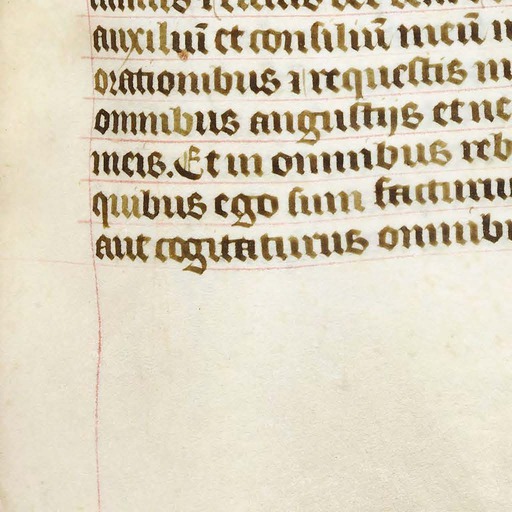 auxiliū et consiliū meū
orationibus ⁊ requestis
omnibus angustijs et ne
meis. Et in omnibus reb
quibus ego sum facturu
aut cogitaturus omnibu